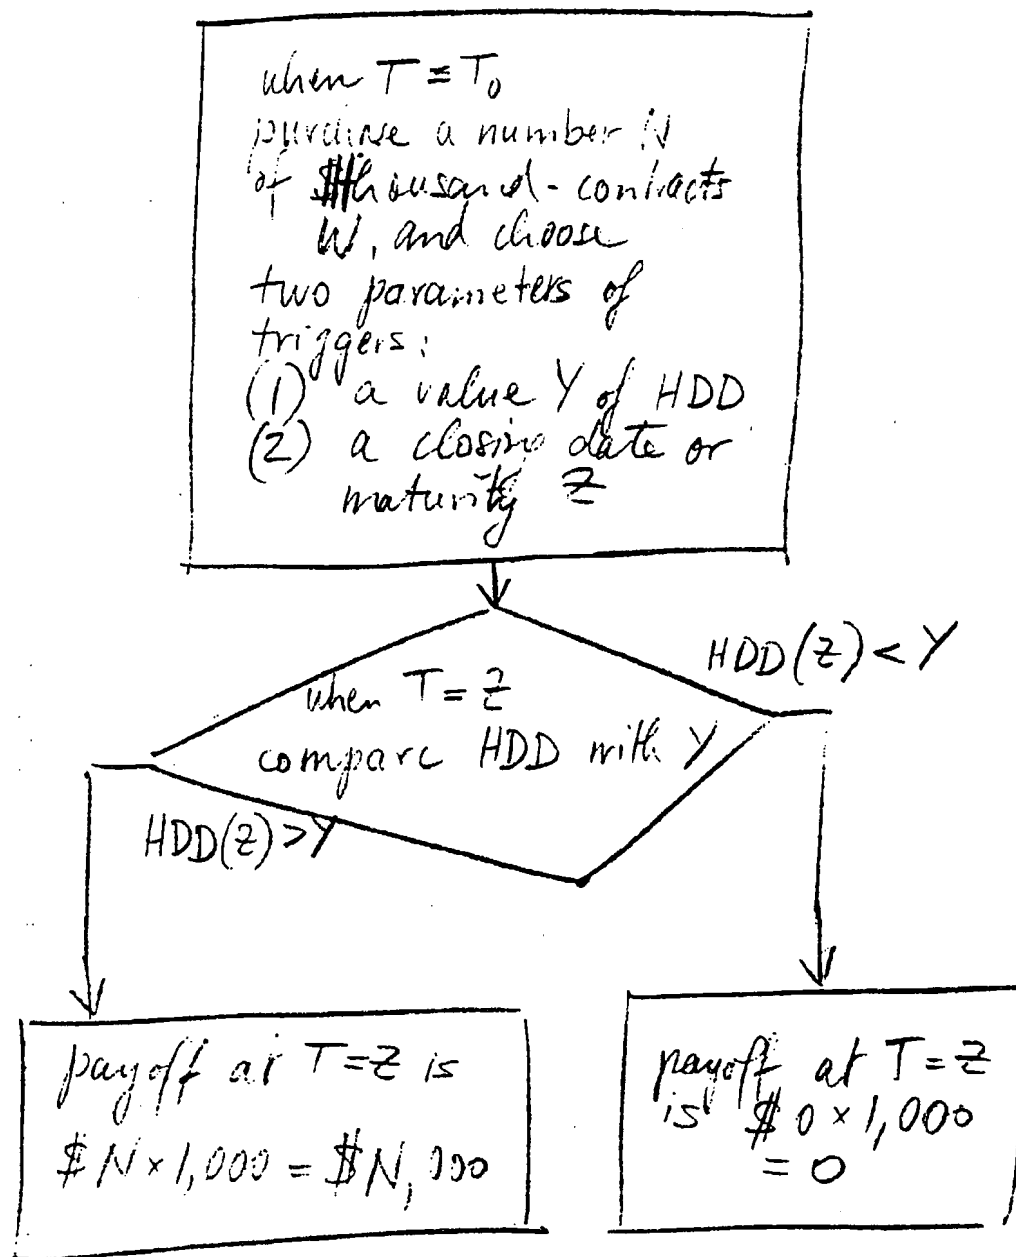 when T = T₀
purchase a number N
of $thousand-contracts
W, and choose
two parameters of
triggers:
(1) a value Y of HDD
(2) a closing date or
maturity Z
HDD(Z) < Y
when T = Z
compare HDD with Y
HDD(Z) > Y
payoff at T=Z is
$N × 1,000 = $N,000
payoff at T=Z
is $0 × 1,000
= 0